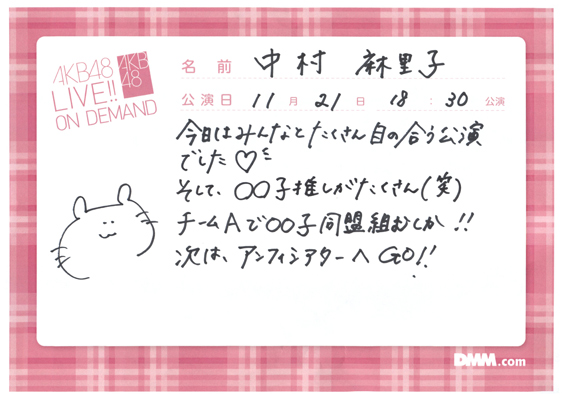 AKB48
LIVE!!
ON DEMAND
AKB
48
名前 中村 麻里子
公演日 11月21日 18:30公演
今日はみんなとたくさん目の合う公演
でした♡
そして、〇〇子推しがたくさん(笑)
チームAで〇〇子同盟組むしか!!
次は、アンフィシアターへGO!!
DMM.com